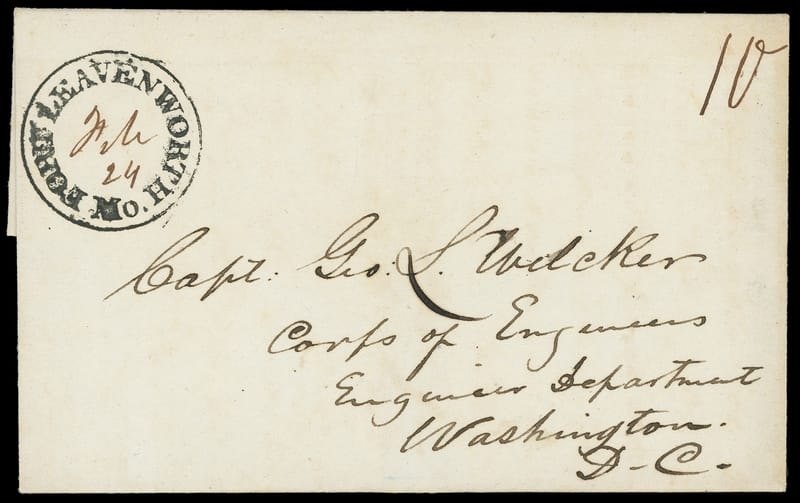 FORT LEAVENWORTH Mo.
Feb
24
10
Capt. Geo. L. Welcker
Corps of Engineers
Engineer Department
Washington.
D-C.